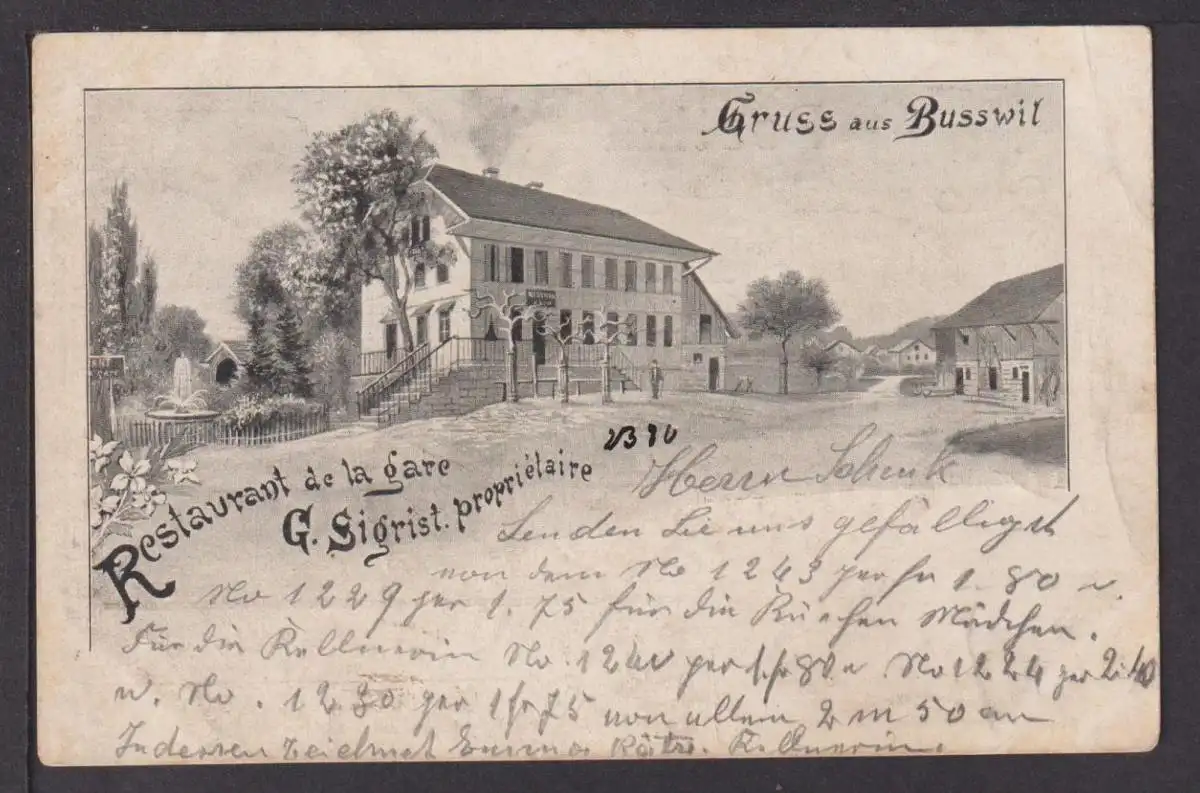 Gruss aus Busswil
Restaurant de la gare
G. Sigrist. propriétaire
Herrn Schenk
Senden Sie uns gefälligst
von dem No 1243 per fr 1.80 u.
No 1229 per 1.75 für die Küchen Mädchen.
Für die Kellnerin No. 1240 per 1 fr 80 u No 1224 per 2.40
u. No. 1230 per 1 fr 75 von allem 2 m 50 cm
Indessen Zeichnet Emma Kellnerin.